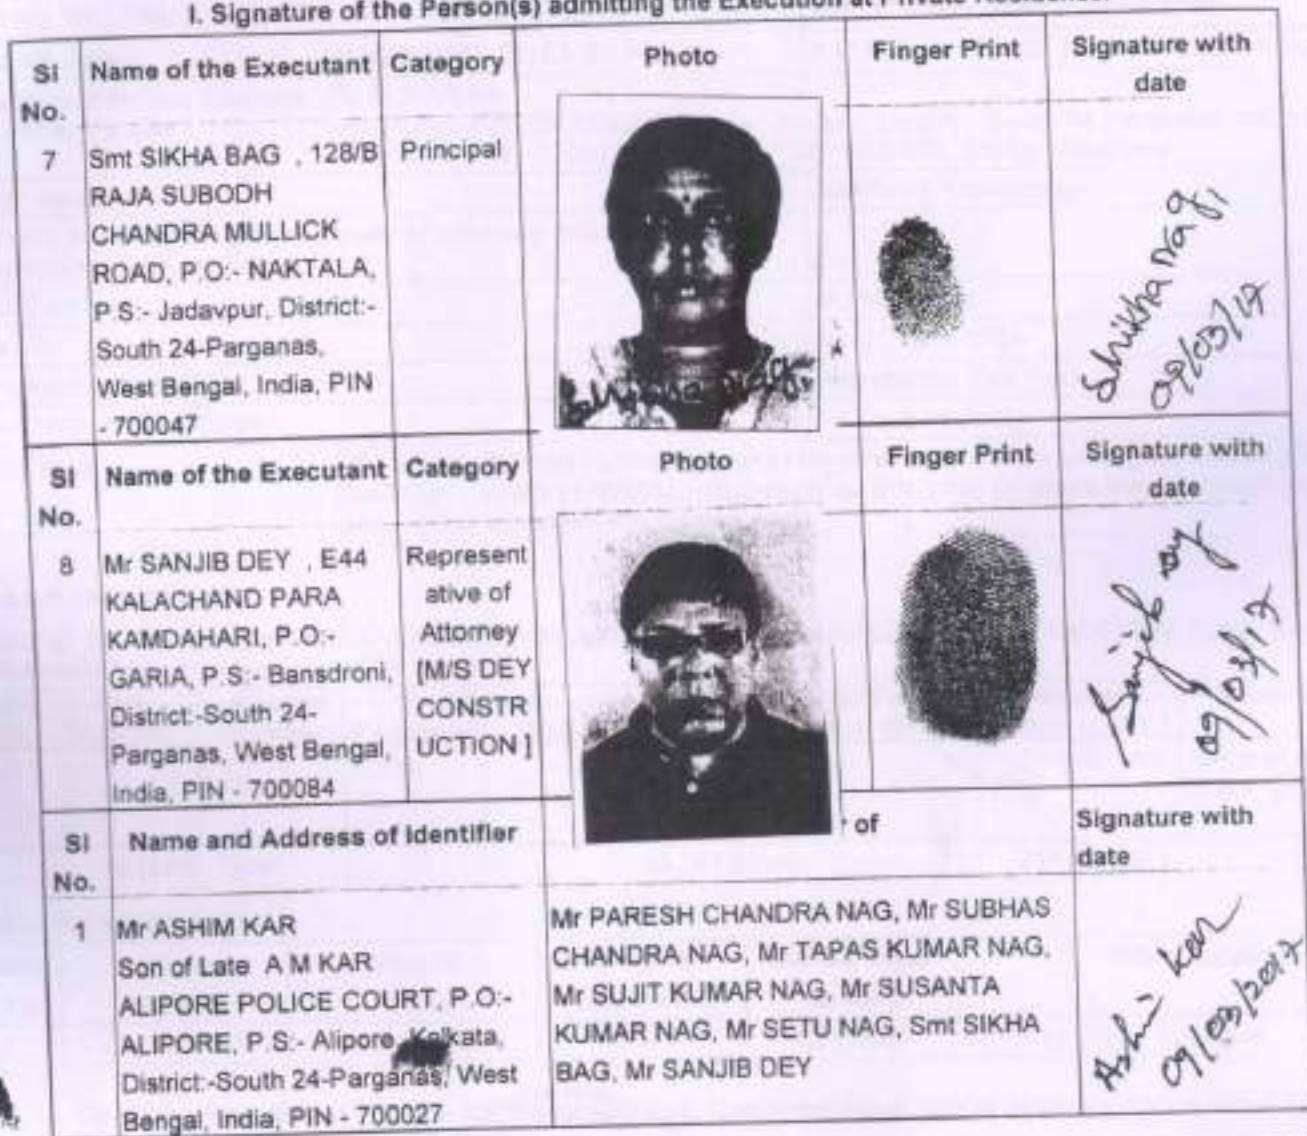 I. Signature of the Person(s) admitting the Execution at Private Residence.
Sl No.
Name of the Executant
Category
Photo
Finger Print
Signature with date
7
Smt SIKHA BAG , 128/B
RAJA SUBODH
CHANDRA MULLICK
ROAD, P.O:- NAKTALA,
P.S:- Jadavpur, District:-
South 24-Parganas,
West Bengal, India, PIN
- 700047
Principal
Shikha Bag,
09/03/17
Sl No.
Name of the Executant
Category
Photo
Finger Print
Signature with date
8
Mr SANJIB DEY , E44
KALACHAND PARA
KAMDAHARI, P.O:-
GARIA, P.S:- Bansdroni,
District:-South 24-
Parganas, West Bengal,
India, PIN - 700084
Represent
ative of
Attorney
[M/S DEY
CONSTR
UCTION ]
Sanjib Dey
09/03/17
Sl No.
Name and Address of identifier
of
Signature with date
1
Mr ASHIM KAR
Son of Late A M KAR
ALIPORE POLICE COURT, P.O:-
ALIPORE, P.S:- Alipore, Kolkata,
District:-South 24-Parganas, West
Bengal, India, PIN - 700027
Mr PARESH CHANDRA NAG, Mr SUBHAS
CHANDRA NAG, Mr TAPAS KUMAR NAG,
Mr SUJIT KUMAR NAG, Mr SUSANTA
KUMAR NAG, Mr SETU NAG, Smt SIKHA
BAG, Mr SANJIB DEY
Ashim Kar
09/03/2017